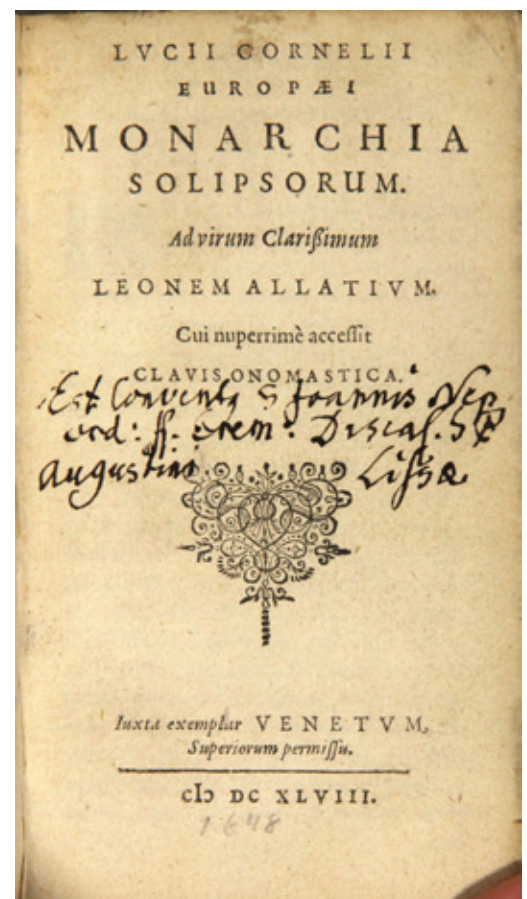 LVCII CORNELII
EUROPÆI
MONARCHIA
SOLIPSORUM.
Ad virum Clarißimum
LEONEM ALLATIVM.
Cui nuperrimè accessit
CLAVIS ONOMASTICA.
Est Conventus S Joannis Nep
ord: ff. Erem: Discal. S P
Augustini Lissæ
Iuxta exemplar VENETVM,
Superiorum permissu.
cIɔ DC XLVIII.
1648